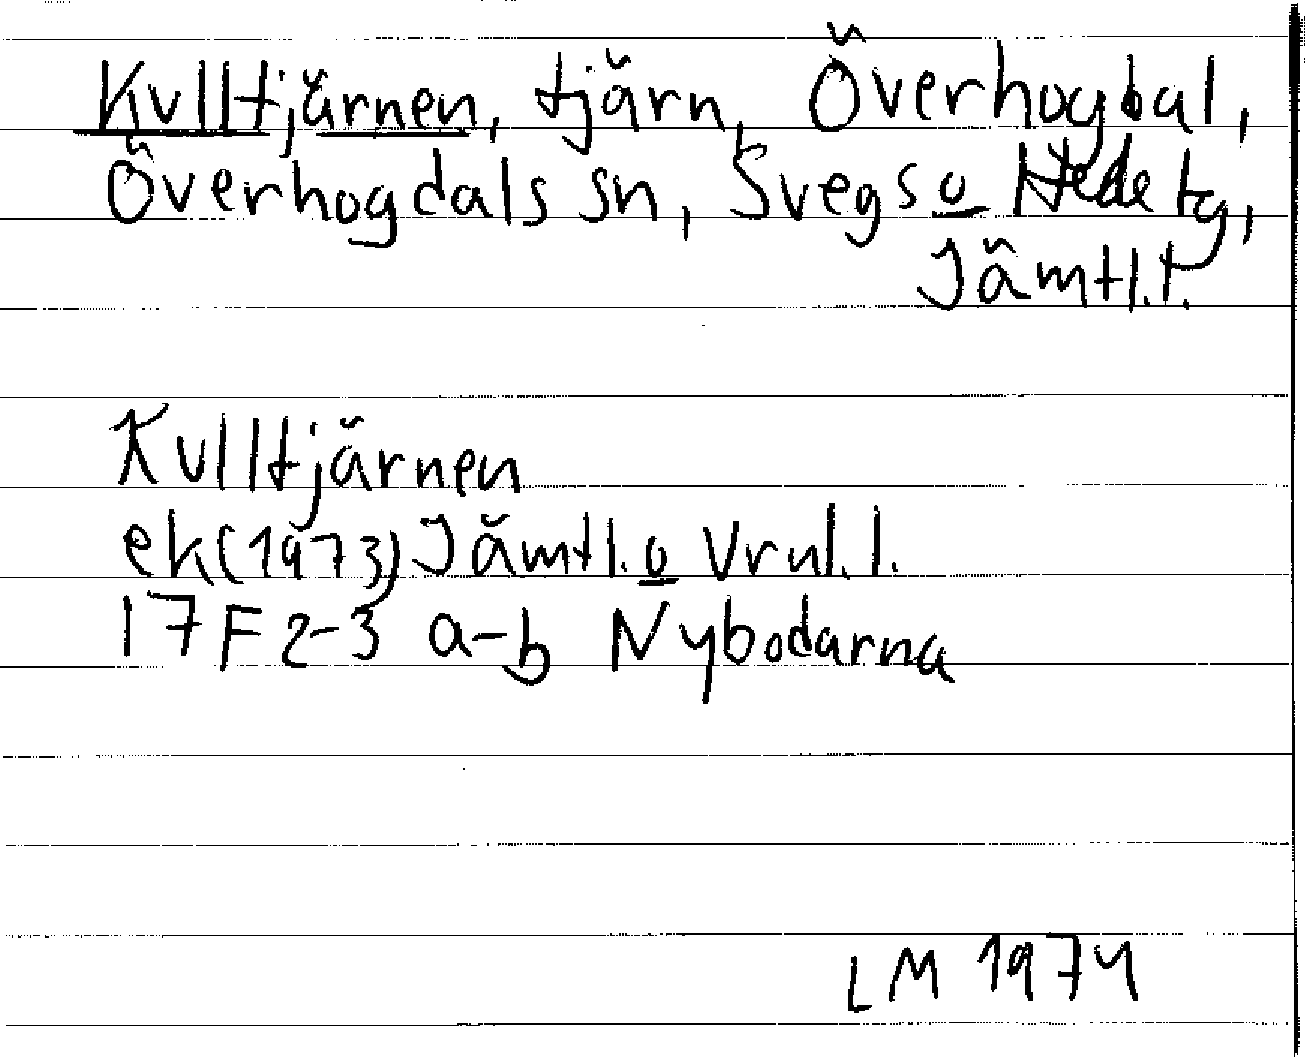 Kulltjärnen, tjärn, Överhogdal,
Överhogdals sn, Svegs o Hede tg,
Jämtl.l.
Kulltjärnen
ek (1973) Jämtl. o
17 F 2-3 a-b Nybodarna
LM 1974